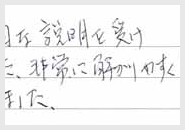 な説明を受け
た。非常に解かりやすく
ました。